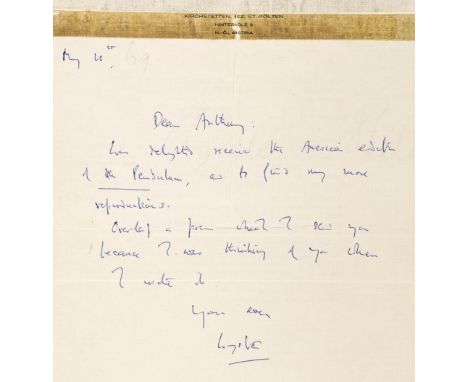 KIRCHSTETTEN, BEZ. ST. PÖLTEN
HINTERHOLZ 6
N.-Ö., AUSTRIA
May 10th 69
Dear Anthony:
Was delighted receive the American edition
of the Pendulum, as to find many more
reproductions.
Overleaf a poem which I send you
because I was thinking of you when
I wrote it
Yours ever
Wystan